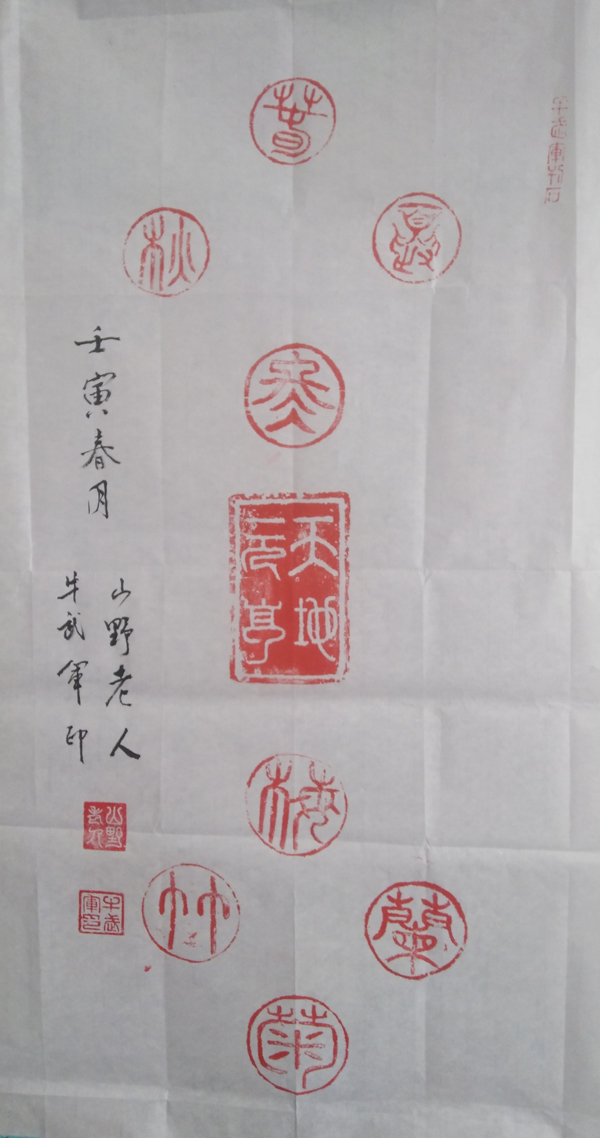 牛武軍石
春
夏
秋
冬
天地
元亨
梅
蘭
竹
菊
壬寅春月
山野老人
牛武軍印
山野老人
牛武軍印